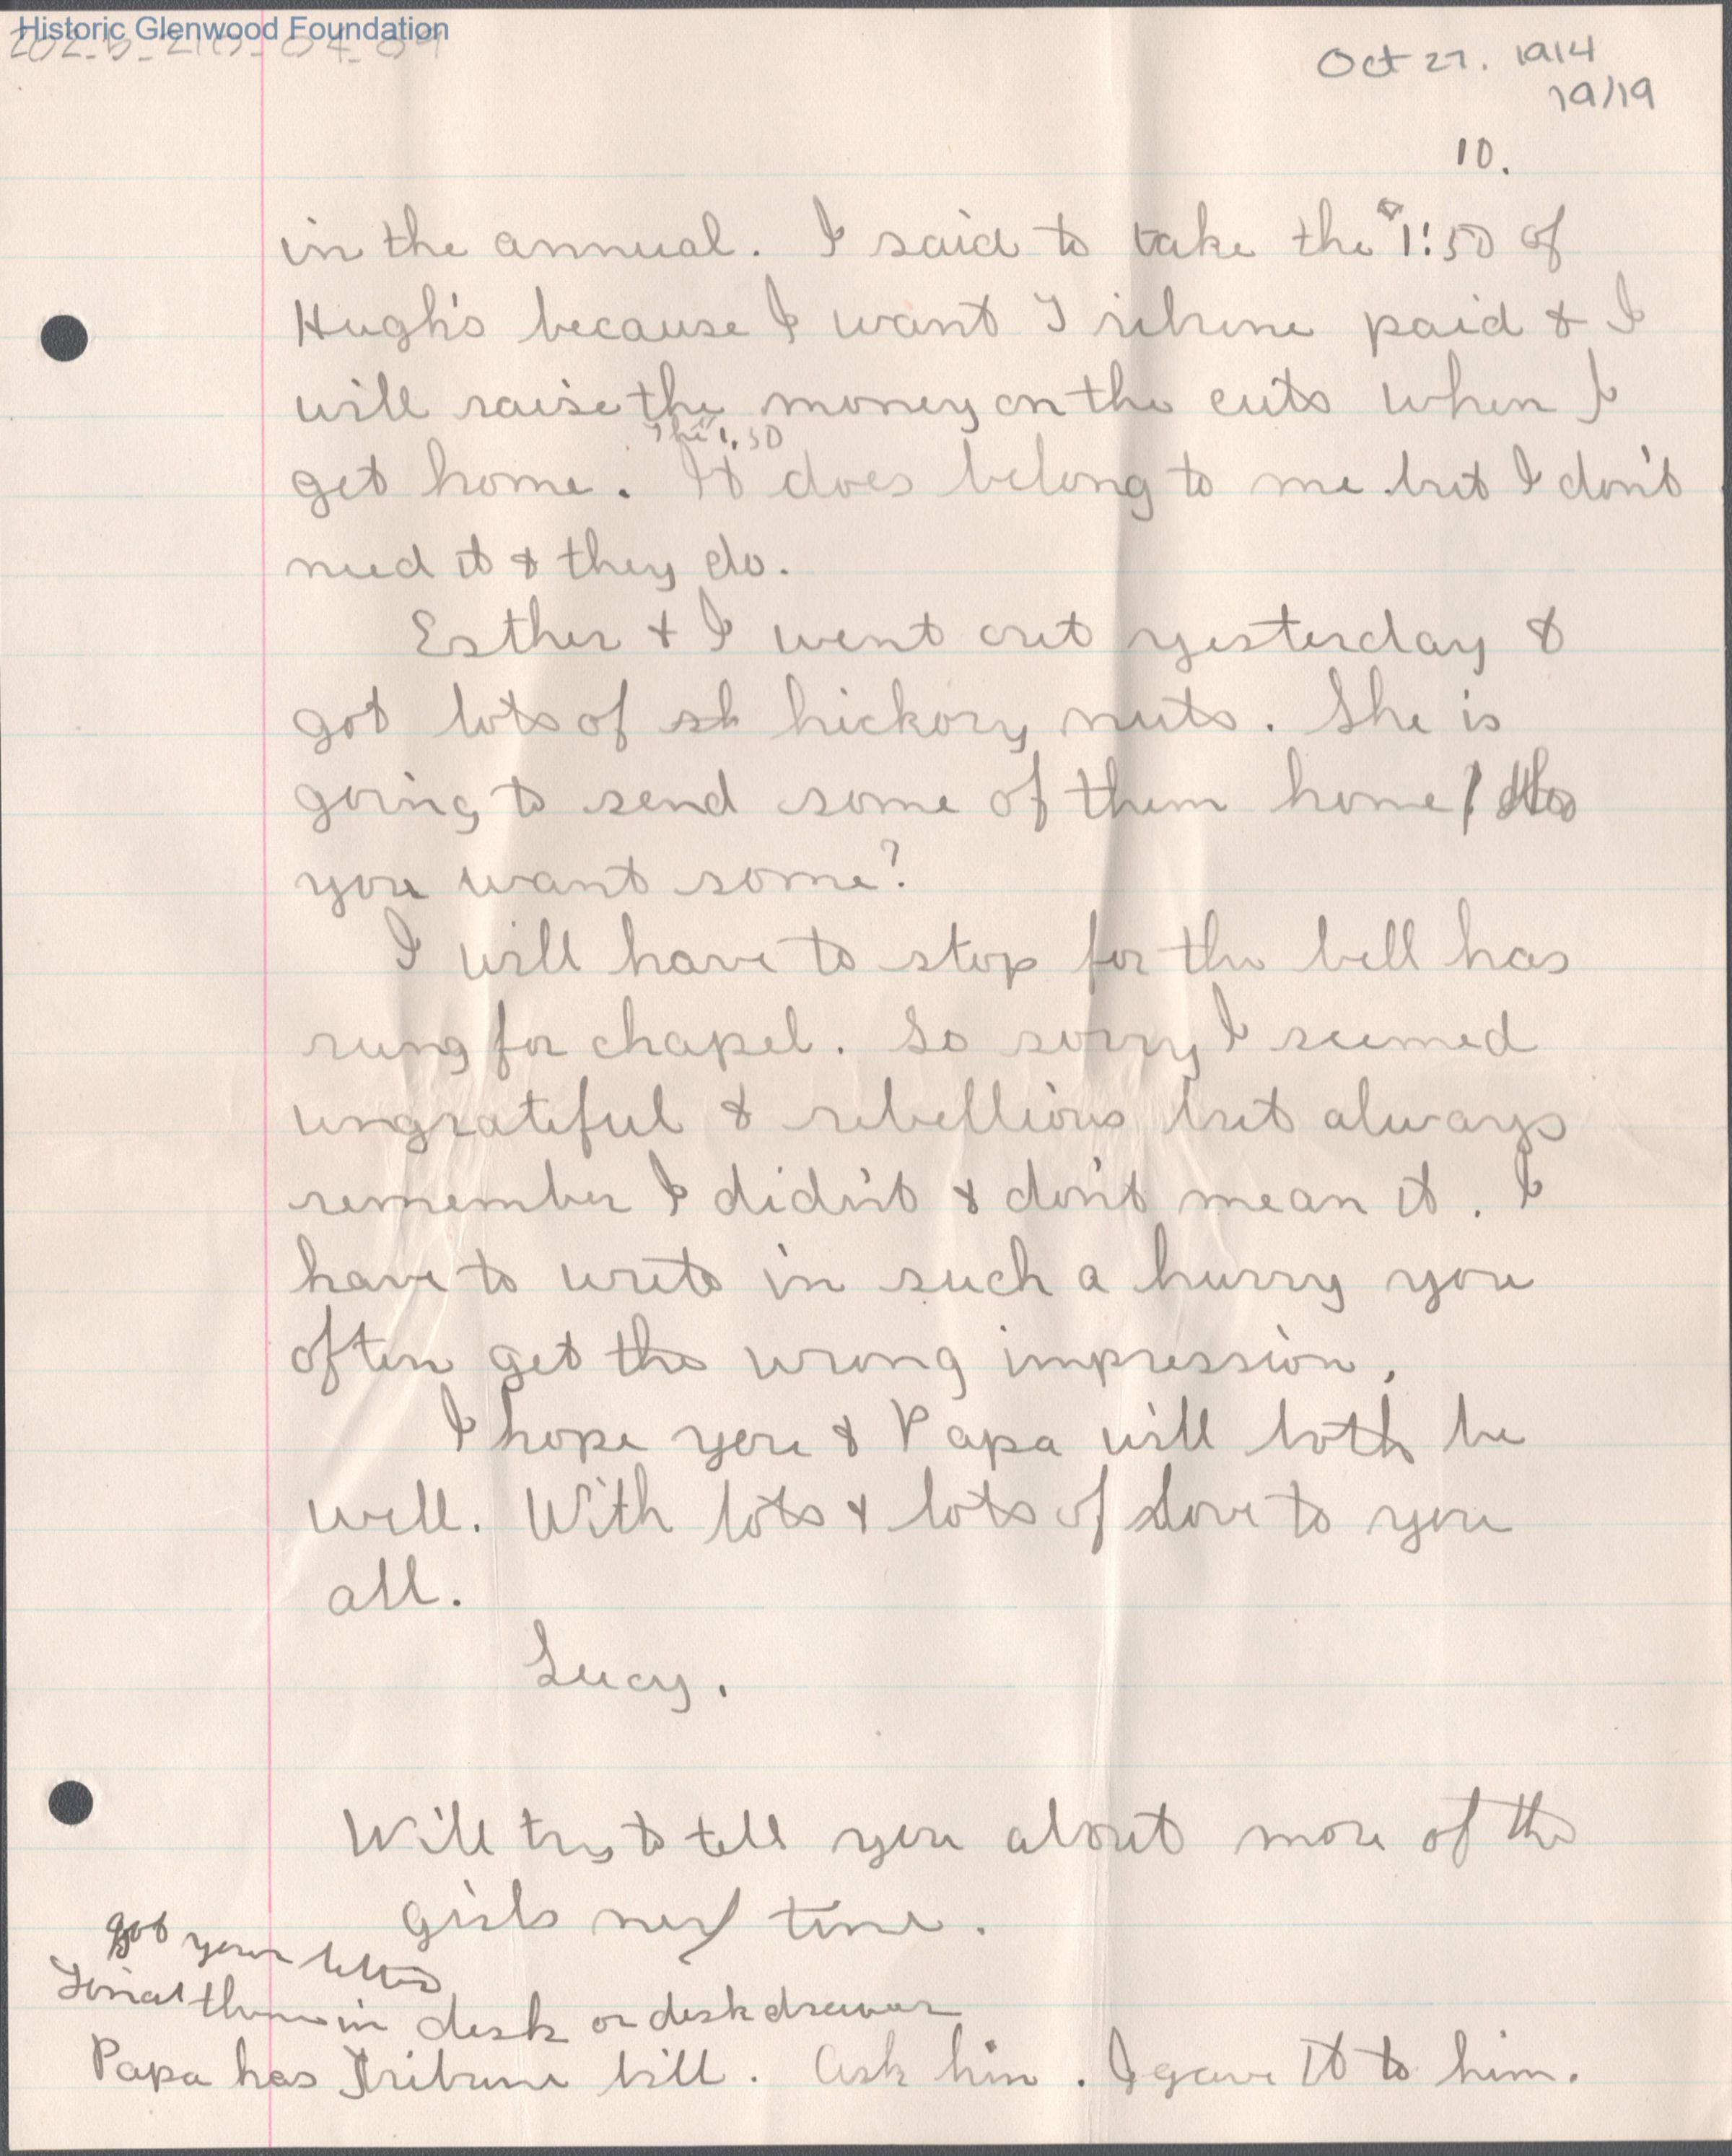 Historic Glenwood Foundation
Oct 27. 1914
19/19
10.
in the annual. I said to take the $1:50 of
Hugh's because I want Tribune paid & I
will raise the money on the cuts when I
The 1.50
get home. It does belong to me but I don't
need it & they do.
Esther & I went out yesterday &
got lots of sh hickory nuts. She is
going to send some of them home / do
you want some?
I will have to stop for the bell has
rung for chapel. So sorry I seemed
ungrateful & rebellious but always
remember I didn't & don't mean it. I
have to write in such a hurry you
often get the wrong impression.
I hope you & Papa will both be
well. With lots & lots of love to you
all.
Lucy.
Will try to tell you about more of the
girls next time.
got your letter
in desk or desk drawer
Papa has Tribune bill. Ask him. I gave it to him.